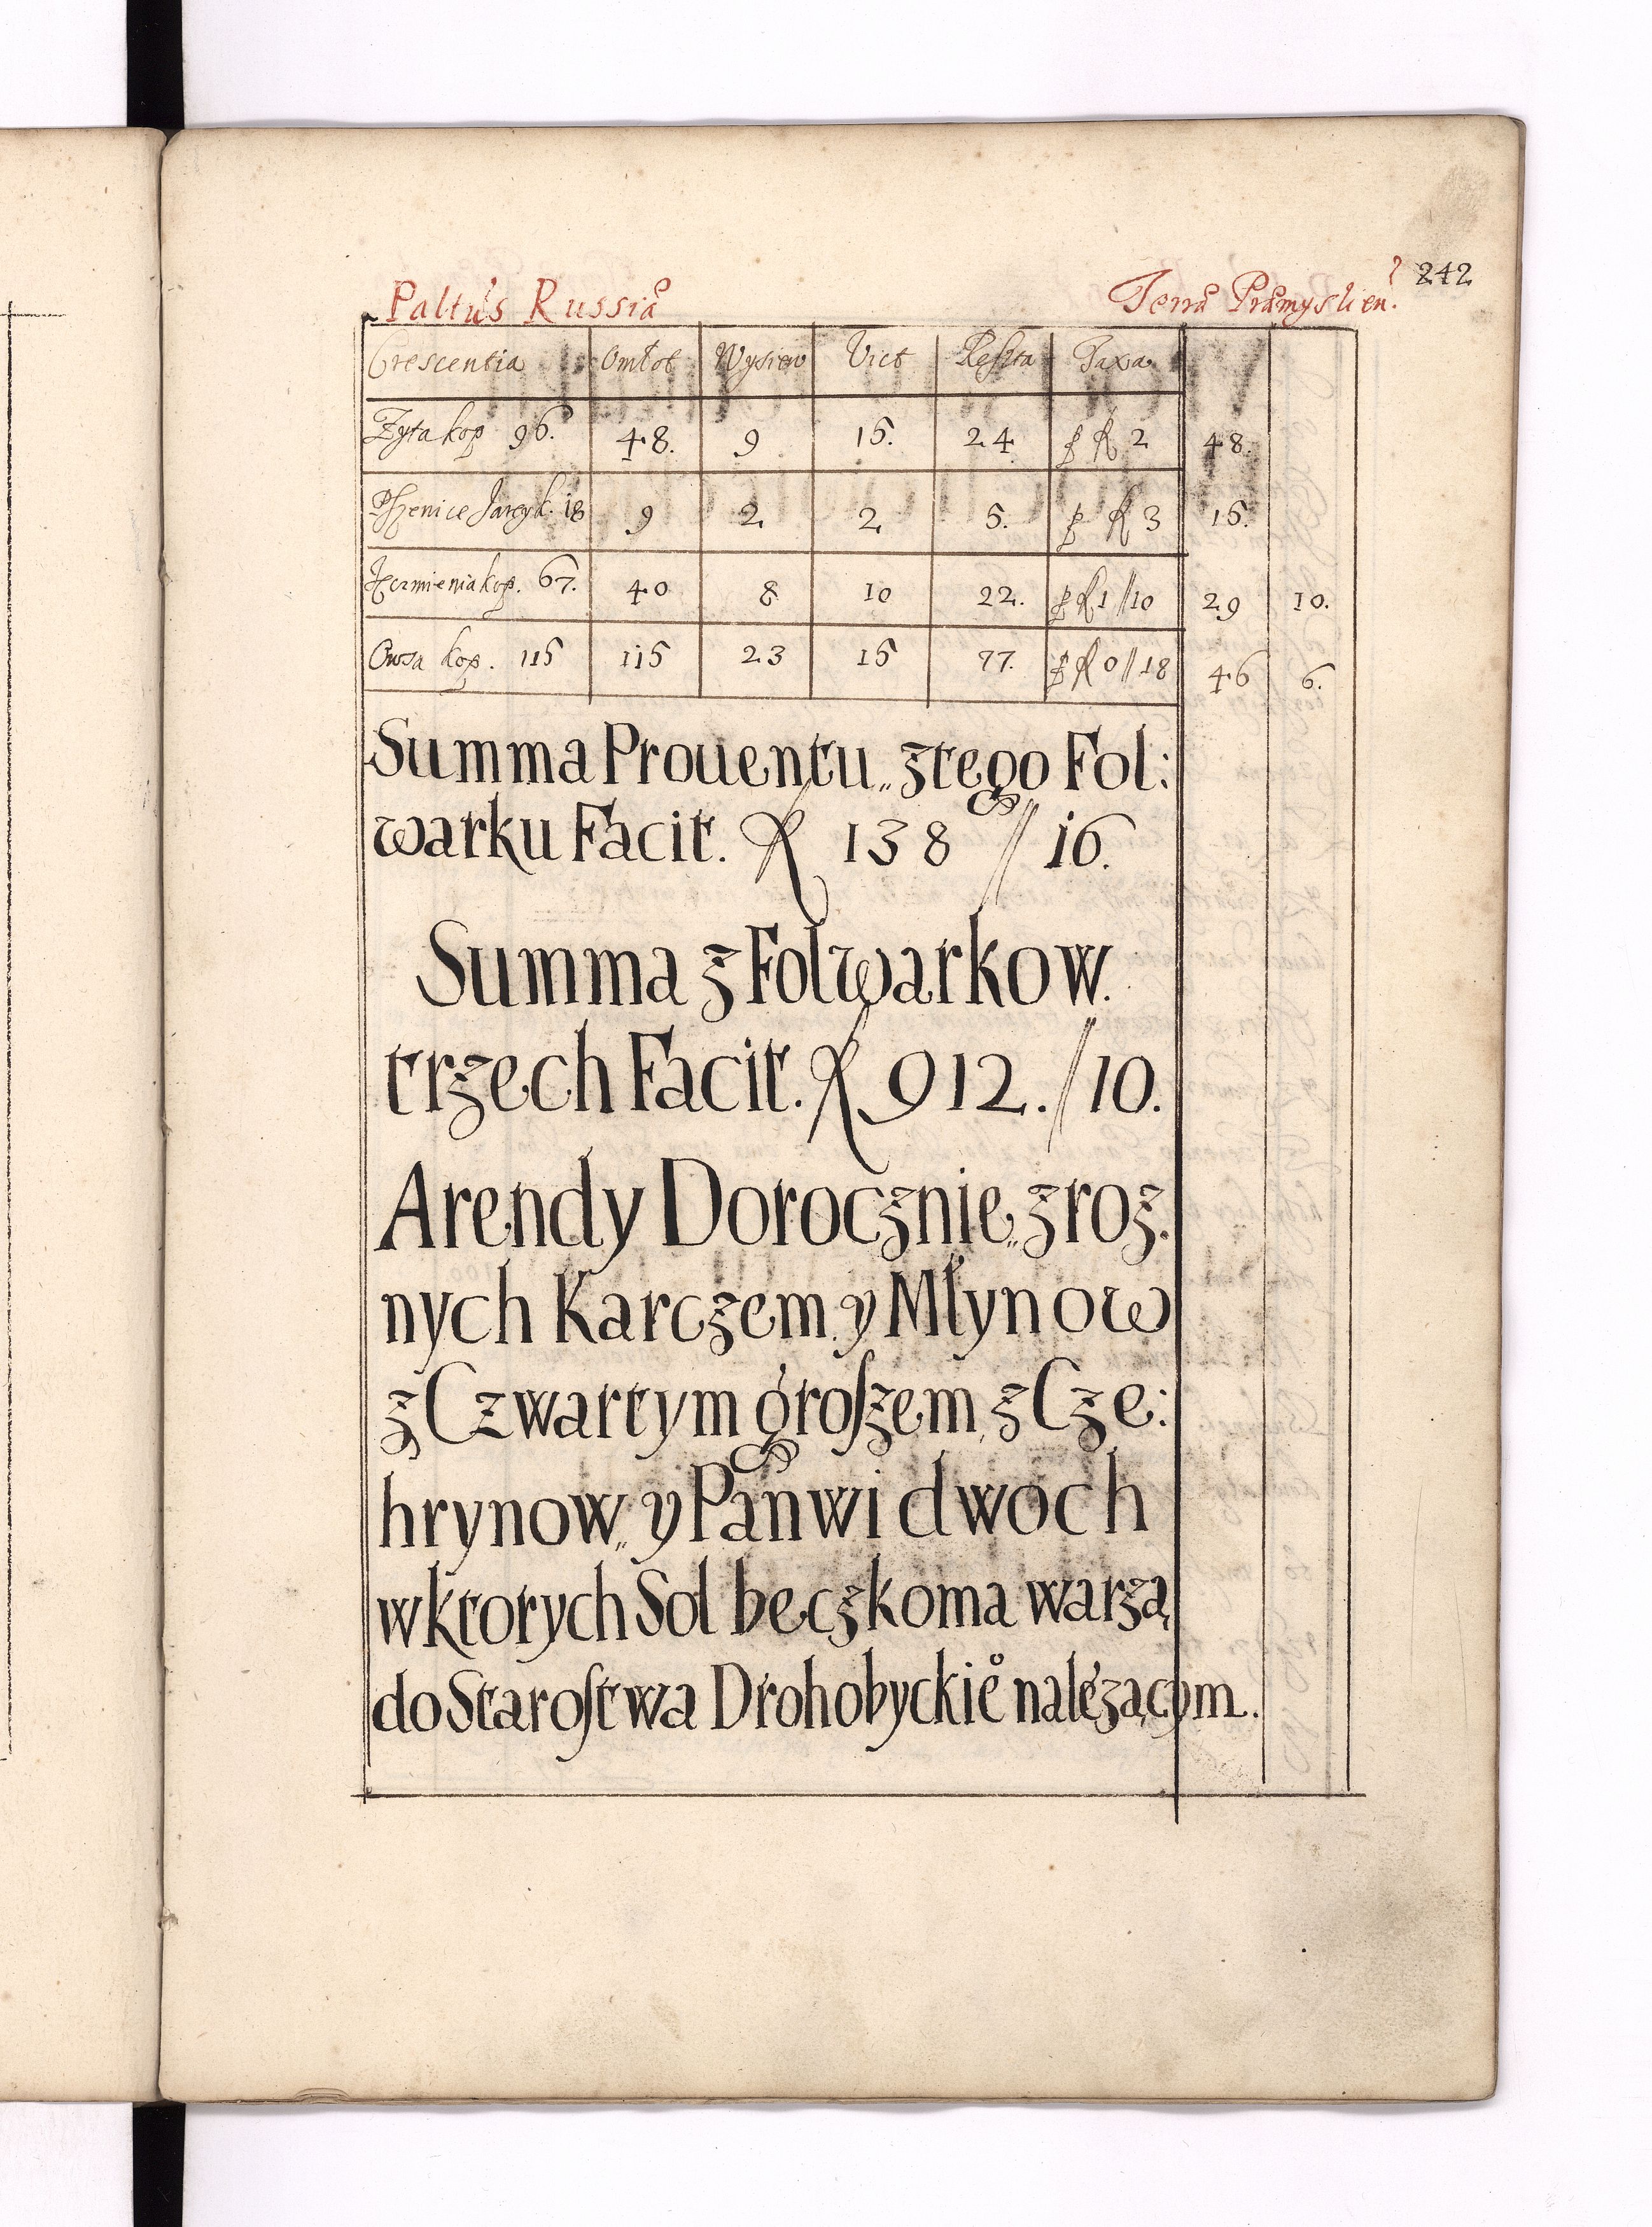 Paltus Russiæ Terræ Præmyslien. 242
Crescentia Omłot Wysiew Vict Reszta Taxa
Zyta kop 96. 48. 9 15. 24 p fl 2 48.
Pszenice Jarey k. 18 9 2 2 5. p fl 3 15.
Jęczmienia kop. 67. 40 8 10 22. p fl 1 // 10 29 10.
Owsa kop. 115 115 23 15 77. p fl 0 // 18 46 6.
Summa Prouentu,, z tego Fol:
warku Facit. fl 138 // 16.
Summa z Folwarkow.
trzech Facit. fl 912. // 10.
Arendy Dorocznie,, z roz.
nych Karczem y Młynow
z Czwartym groszem, z Cze:
hrynow,, y Panwi dwoch
w ktorych Sol beczkoma warzą
do Starostwa Drohobyckieº należącym.